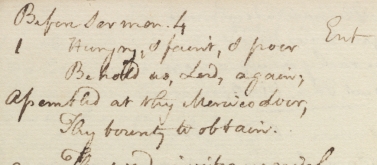 Before Sermon. 4
Ent
1 Hungry, & faint, & poor
Behold us, Lord, again;
Assembled at thy Mercies door,
Thy bounty to obtain.